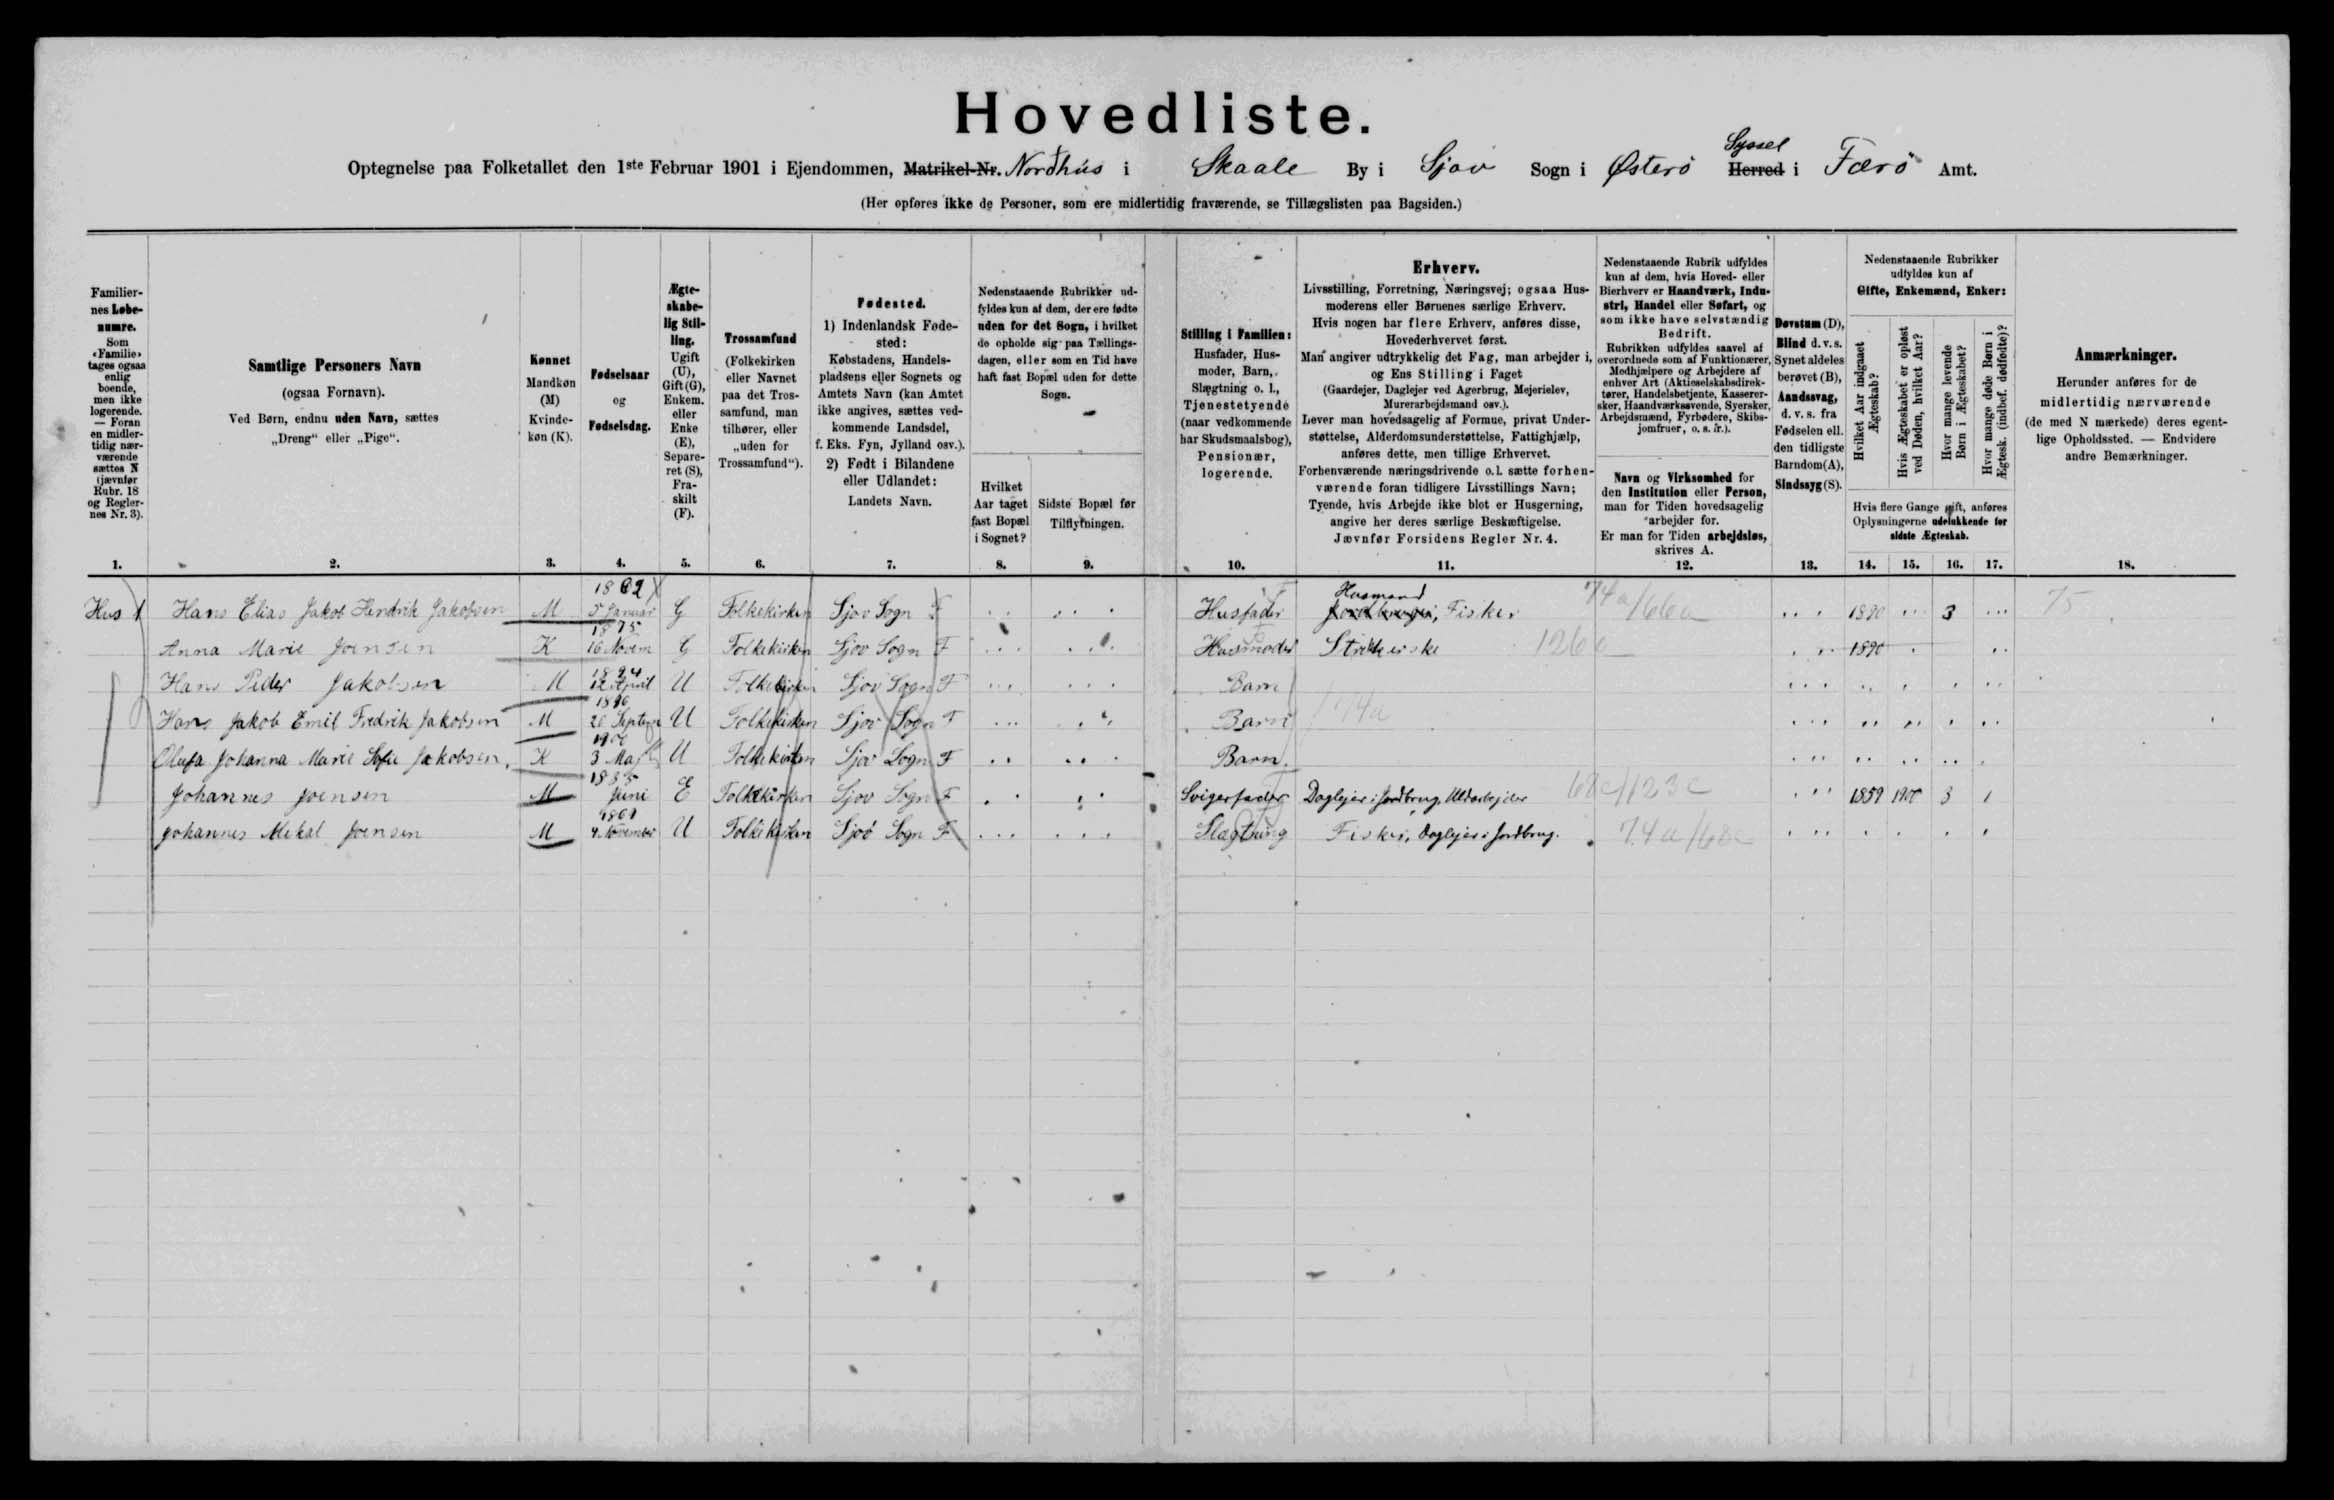 Hovedliste.
Syssel
Optegnelse paa Folketallet den 1ste Februar 1901 i Ejendommen, Matrikel-Nr. Nordhús i Skaale By i Sjov Sogn i Østerö Herred i Færö Amt.
(Her opføres ikke de Personer, som ere midlertidig fraværende, se Tillægslisten paa Bagsiden.)
Familier-
nes Løbe-
numre.
Som
«Familie»
tages ogsaa
enlig
boende,
men ikke
logerende.
— Foran
en midler-
tidig nær-
værende
sættes N
(jævnfør
Rubr. 18
og Regler-
nes Nr. 3).
1.
Samtlige Personers Navn
(ogsaa Fornavn).
Ved Børn, endnu uden Navn, sættes
„Dreng“ eller „Pige“.
2.
Kønnet
Mandkøn
(M)
Kvinde-
køn (K).
3.
Fødselsaar
og
Fødselsdag.
4.
Ægte-
skabe-
lig Stil-
ling.
Ugift
(U),
Gift (G),
Enkem.
eller
Enke
(E),
Separe-
ret (S),
Fra-
skilt
(F).
5.
Trossamfund
(Folkekirken
eller Navnet
paa det Tros-
samfund, man
tilhører, eller
„uden for
Trossamfund“).
6.
Fødested.
1) Indenlandsk Føde-
sted:
Købstadens, Handels-
pladsens eller Sognets og
Amtets Navn (kan Amtet
ikke angives, sættes ved-
kommende Landsdel,
f. Eks. Fyn, Jylland osv.).
2) Født i Bilandene
eller Udlandet:
Landets Navn.
7.
Nedenstaaende Rubrikker ud-
fyldes kun af dem, der ere fødte
uden for det Sogn, i hvilket
de opholde sig paa Tællings-
dagen, eller som en Tid have
haft fast Bopæl uden for dette
Sogn.
Hvilket
Aar taget
fast Bopæl
i Sognet?
8.
Sidste Bopæl før
Tilflytningen.
9.
Stilling i Familien:
Husfader, Hus-
moder, Barn,
Slægtning o. l.,
Tjenestetyende
(naar vedkommende
har Skudsmaalsbog),
Pensionær,
logerende.
10.
Erhverv.
Livsstilling, Forretning, Næringsvej; ogsaa Hus-
moderens eller Børnenes særlige Erhverv.
Hvis nogen har flere Erhverv, anføres disse,
Hovederhvervet først.
Man angiver udtrykkelig det Fag, man arbejder i,
og Ens Stilling i Faget
(Gaardejer, Daglejer ved Agerbrug, Mejerielev,
Murerarbejdsmand osv.).
Lever man hovedsagelig af Formue, privat Under-
støttelse, Alderdomsunderstøttelse, Fattighjælp,
anføres dette, men tillige Erhvervet.
Forhenværende næringsdrivende o.l. sætte forhen-
værende foran tidligere Livsstillings Navn;
Tyende, hvis Arbejde ikke blot er Husgerning,
angive her deres særlige Beskæftigelse.
Jævnfør Forsidens Regler Nr. 4.
11.
Nedenstaaende Rubrik udfyldes
kun af dem, hvis Hoved- eller
Bierhverv er Haandværk, Indu-
stri, Handel eller Søfart, og
som ikke have selvstændig
Bedrift.
Rubrikken udfyldes saavel af
overordnede som af Funktionærer,
Medhjælpere og Arbejdere af
enhver Art (Aktieselskabsdirek-
tører, Handelsbetjente, Kasserer-
sker, Haandværkssvende, Syersker,
Arbejdsmænd, Fyrbødere, Skibs-
jomfruer, o. s. fr.).
Navn og Virksomhed for
den Institution eller Person,
man for Tiden hovedsagelig
arbejder for.
Er man for Tiden arbejdsløs,
skrives A.
12.
Døvstum (D),
Blind d. v. s.
Synet aldeles
berøvet (B),
Aandssvag,
d. v. s. fra
Fødselen ell.
den tidligste
Barndom (A),
Sindssyg (S).
13.
Nedenstaaende Rubrikker
udfyldes kun af
Gifte, Enkemænd, Enker:
Hvilket Aar indgaaet
Ægteskab?
Hvis Ægteskabet er opløst
ved Døden, hvilket Aar?
Hvor mange levende
Børn i Ægteskabet?
Hvor mange døde Børn i
Ægtesk. (indbef. dødfødte)?
Hvis flere Gange gift, anføres
Oplysningerne udelukkende for
sidste Ægteskab.
14. 15. 16. 17.
Anmærkninger.
Herunder anføres for de
midlertidig nærværende
(de med N mærkede) deres egent-
lige Opholdssted. — Endvidere
andre Bemærkninger.
18.
1862 Husmand
Hus 1 Hans Elias Jakob Hendrik Jakobsen M 5 Januar G Folkekirken Sjov Sogn F Husfader Jordbruger, Fisker 74a/66a 1890 3 75
1875
Anna Marie Joensen K 16 Novem G Folkekirken Sjov Sogn F Husmoder Strikkerske 126 1890
1894
Hans Peder Jakobsen M 12 April U Folkekirken Sjov Sogn F Barn
1896
Hans Jakob Emil Fredrik Jakobsen M 26 Septem U Folkekirken Sjov Sogn F Barn 74a
1900
Olufa Johanna Marie Sofie Jakobsen K 3 Maj U Folkekirken Sjov Sogn F Barn.
1835
Johannes Joensen M Juni E Folkekirken Sjov Sogn F Svigerfader Daglejer i Jordbrug, Uldarbejder 68c/123c 1859 1900 3 1
Johannes Mikal Joensen M 4 November U Folkekirken Sjov Sogn F Slægtning Fisker, Daglejer i Jordbrug. 74a/68c